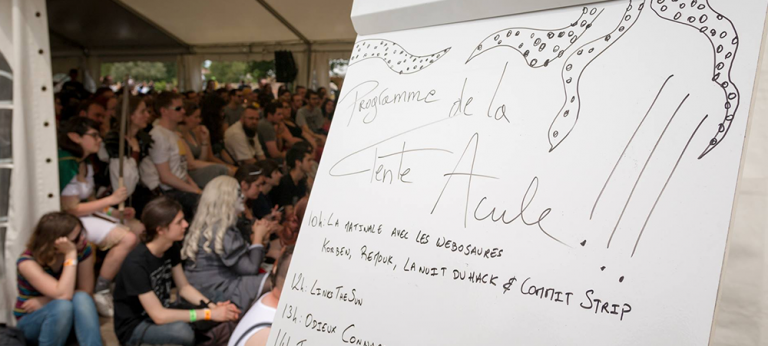 Programme de la
Tente Acule !!!
10h: LA MATINALE AVEC LES WEBOSAURES
KORBEN, REMOUK, LA NUIT DU HACK & COMMIT STRIP
12h: LINKSTHESUN
13h: ODIEUX CONN
14h